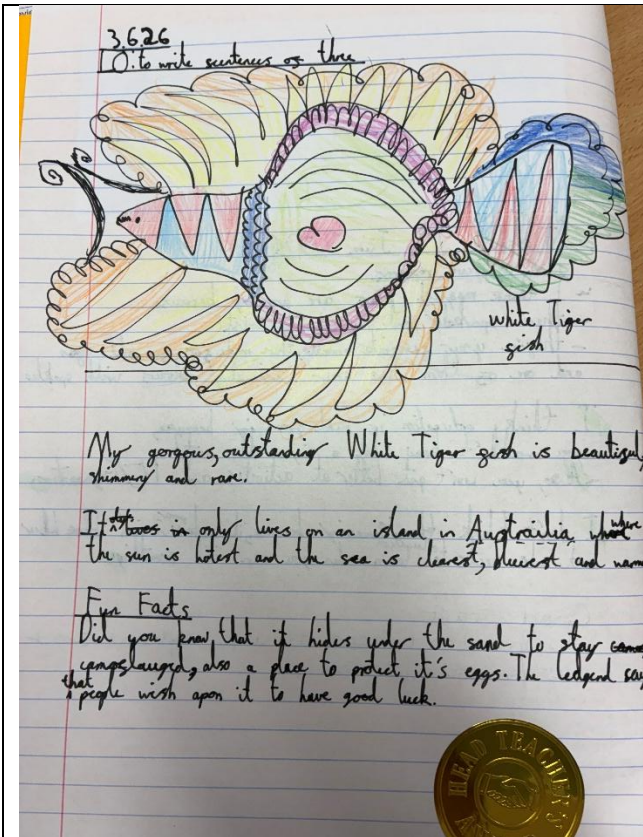 3.6.26
LO: to write sentences of three
white Tiger
fish
My gorgous, outstanding White Tiger fish is beautiful,
shimmery and rare.
It only lives on an island in Austrailia where
the sun is hotest and the sea is clearest, bluierst and warm
Fun Facts
Did you know, that it hides under the sand to stay
camoflauged, also a place to protect it's eggs. The ledgend say
that people wish apon it to have good luck.
HEAD TEACHER'S